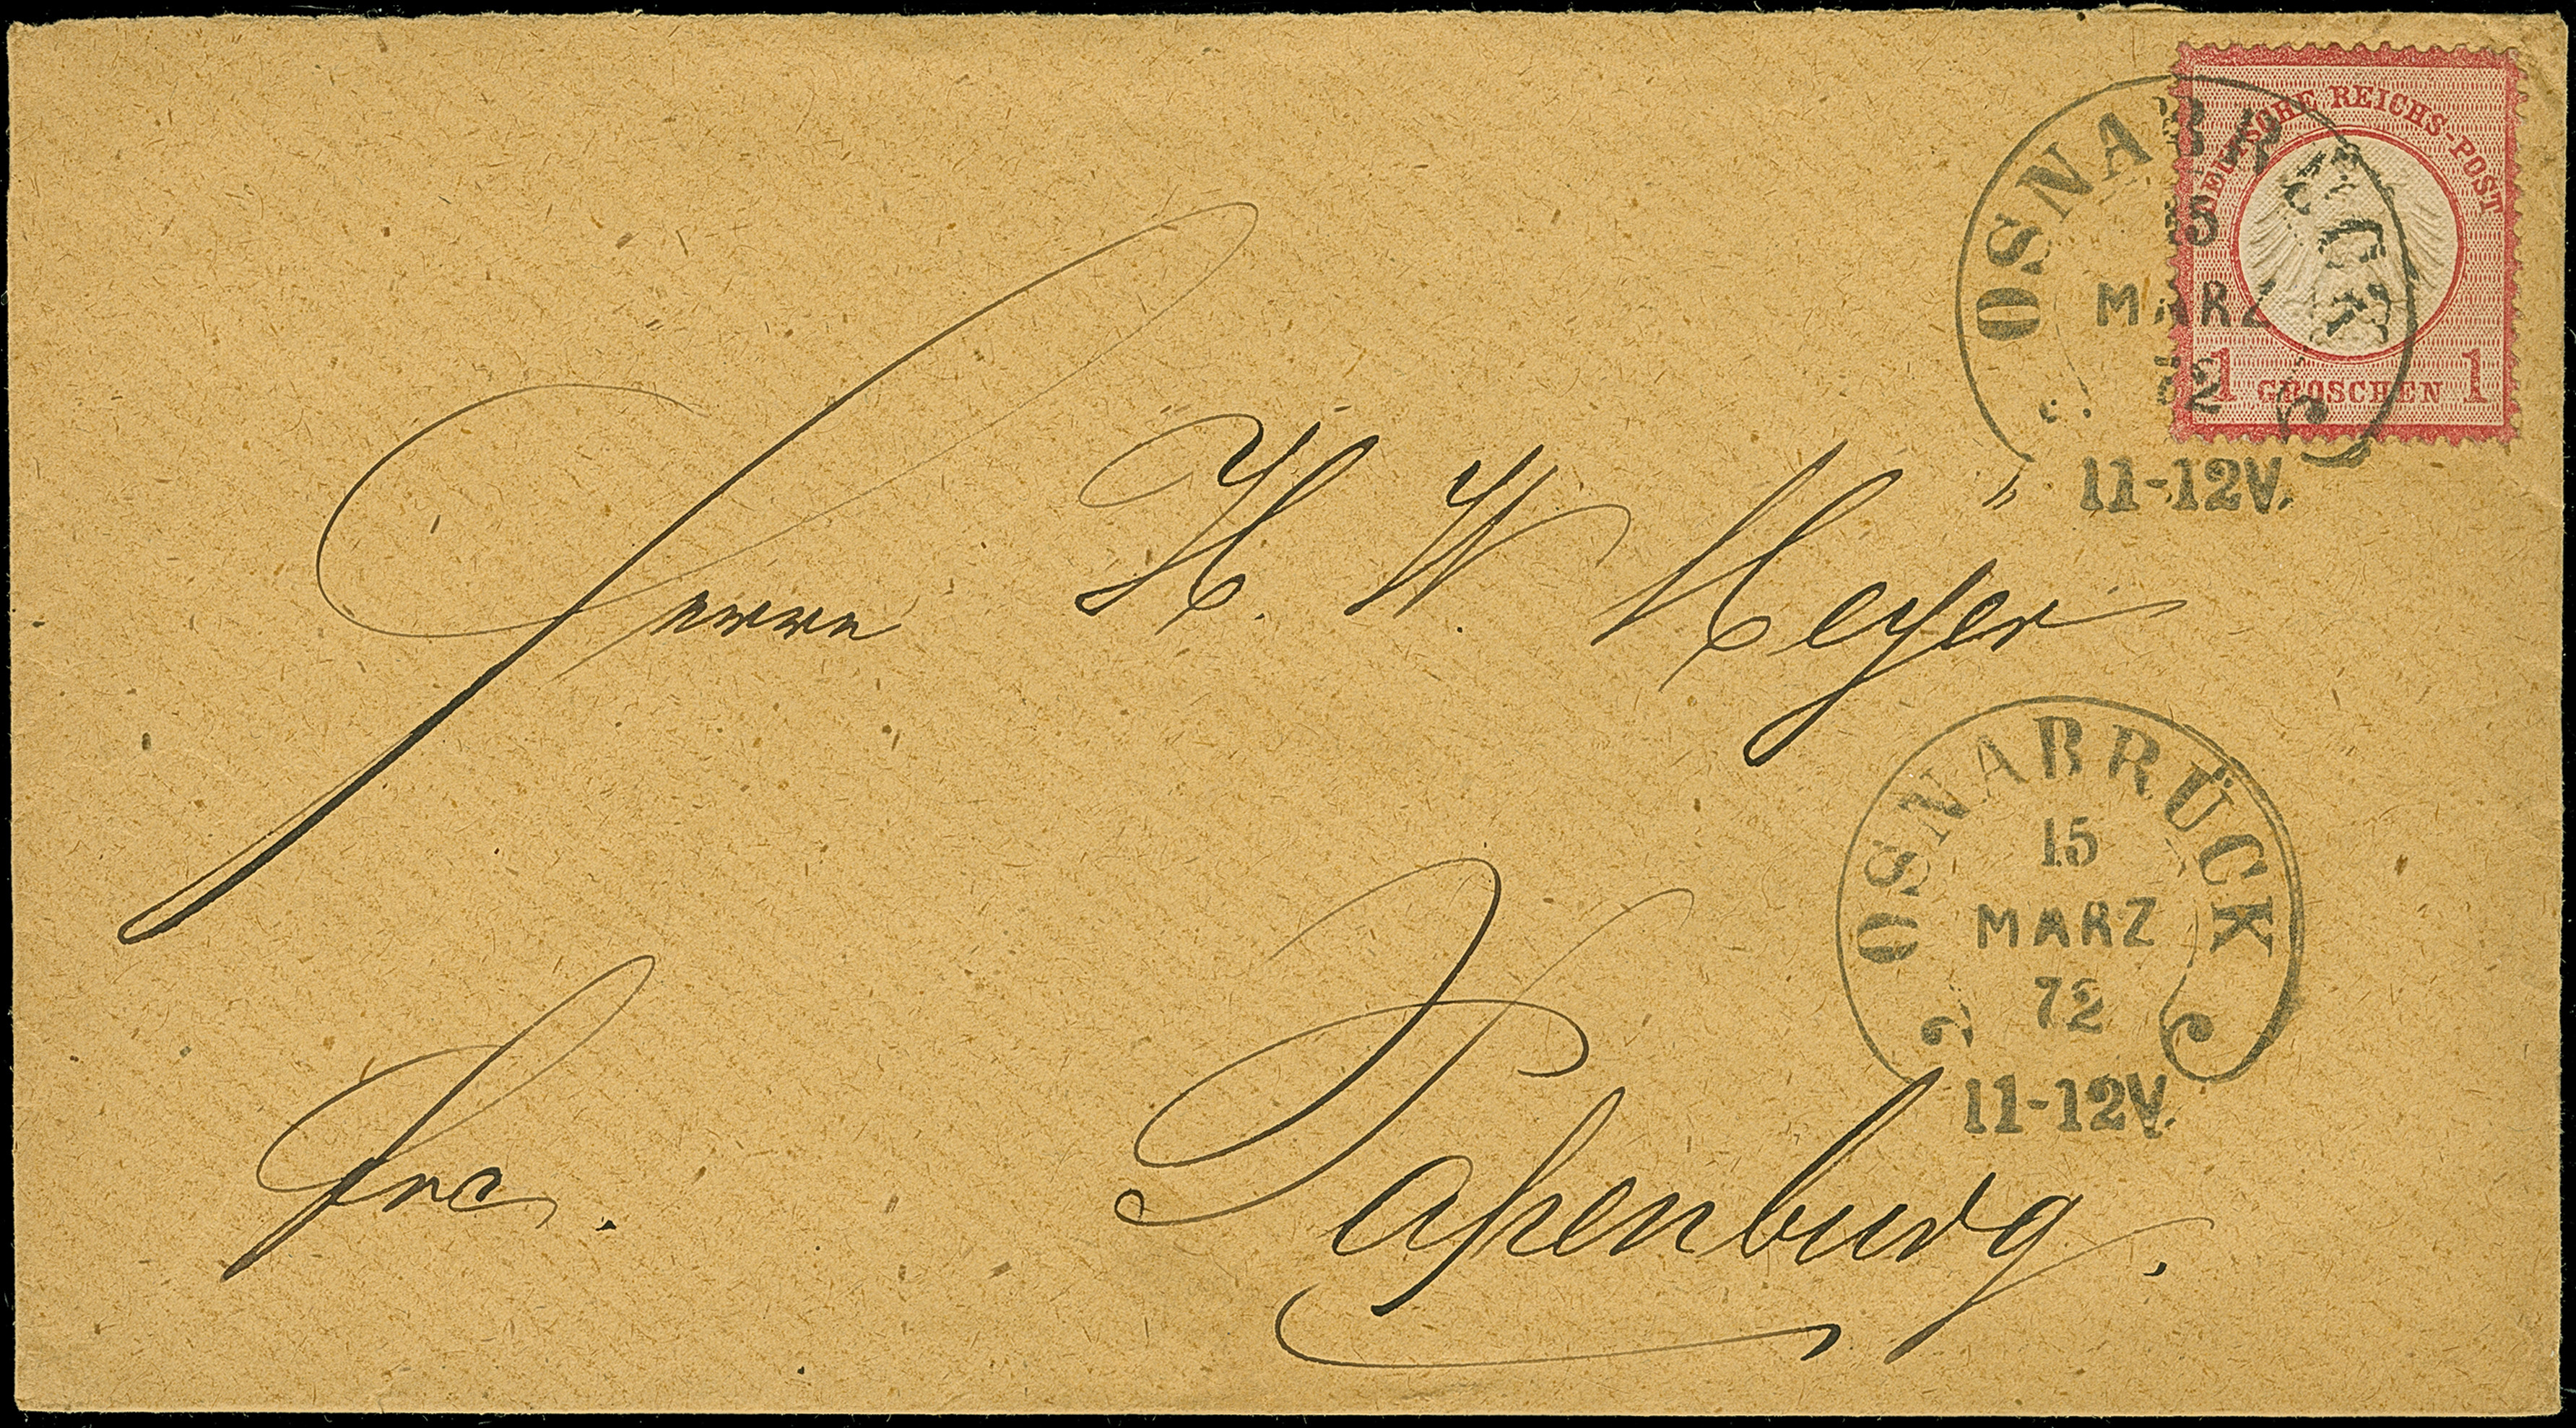 DEUTSCHE REICHS-POST
1 GROSCHEN 1
OSNABRÜCK
15
MARZ
72
11-12V.
Herrn H. W. Meyer
OSNABRÜCK
15
MARZ
72
11-12V.
frc.
Papenburg.